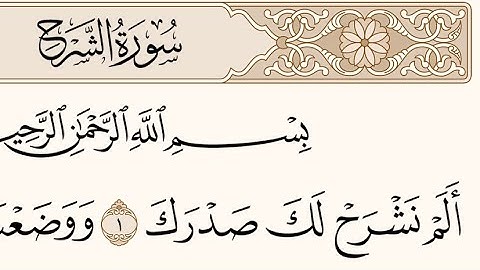 سُورَةُ الشَّرْحِ
بِسْمِ ٱللَّهِ ٱلرَّحْمَٰنِ ٱلرَّحِي
أَلَمْ نَشْرَحْ لَكَ صَدْرَكَ ١ وَوَضَعْنَ